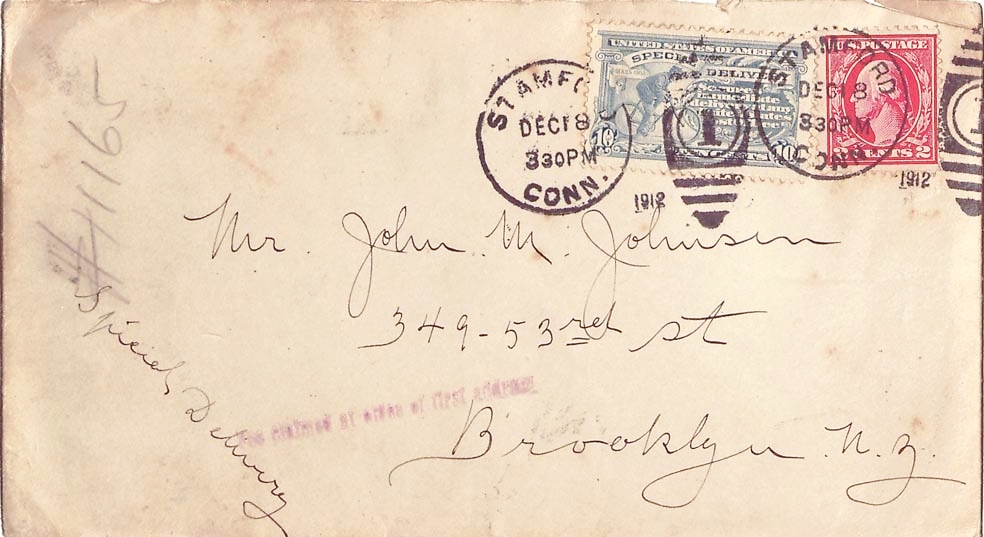 UNITED STATES OF AMERICA
SPECIAL DELIVERY
Secures
immediate
delivery at any
United States
post office
10 TEN CENTS 10
U.S. POSTAGE
2 CENTS 2
STAMFORD
DEC 18
330PM
CONN.
1912
1
STAMFORD
DEC 18
330PM
CONN.
1912
1
#41165
Mr. John M. Johnsen
349-53rd st
Brooklyn N.Y.
Special Delivery
claimed at office of first address